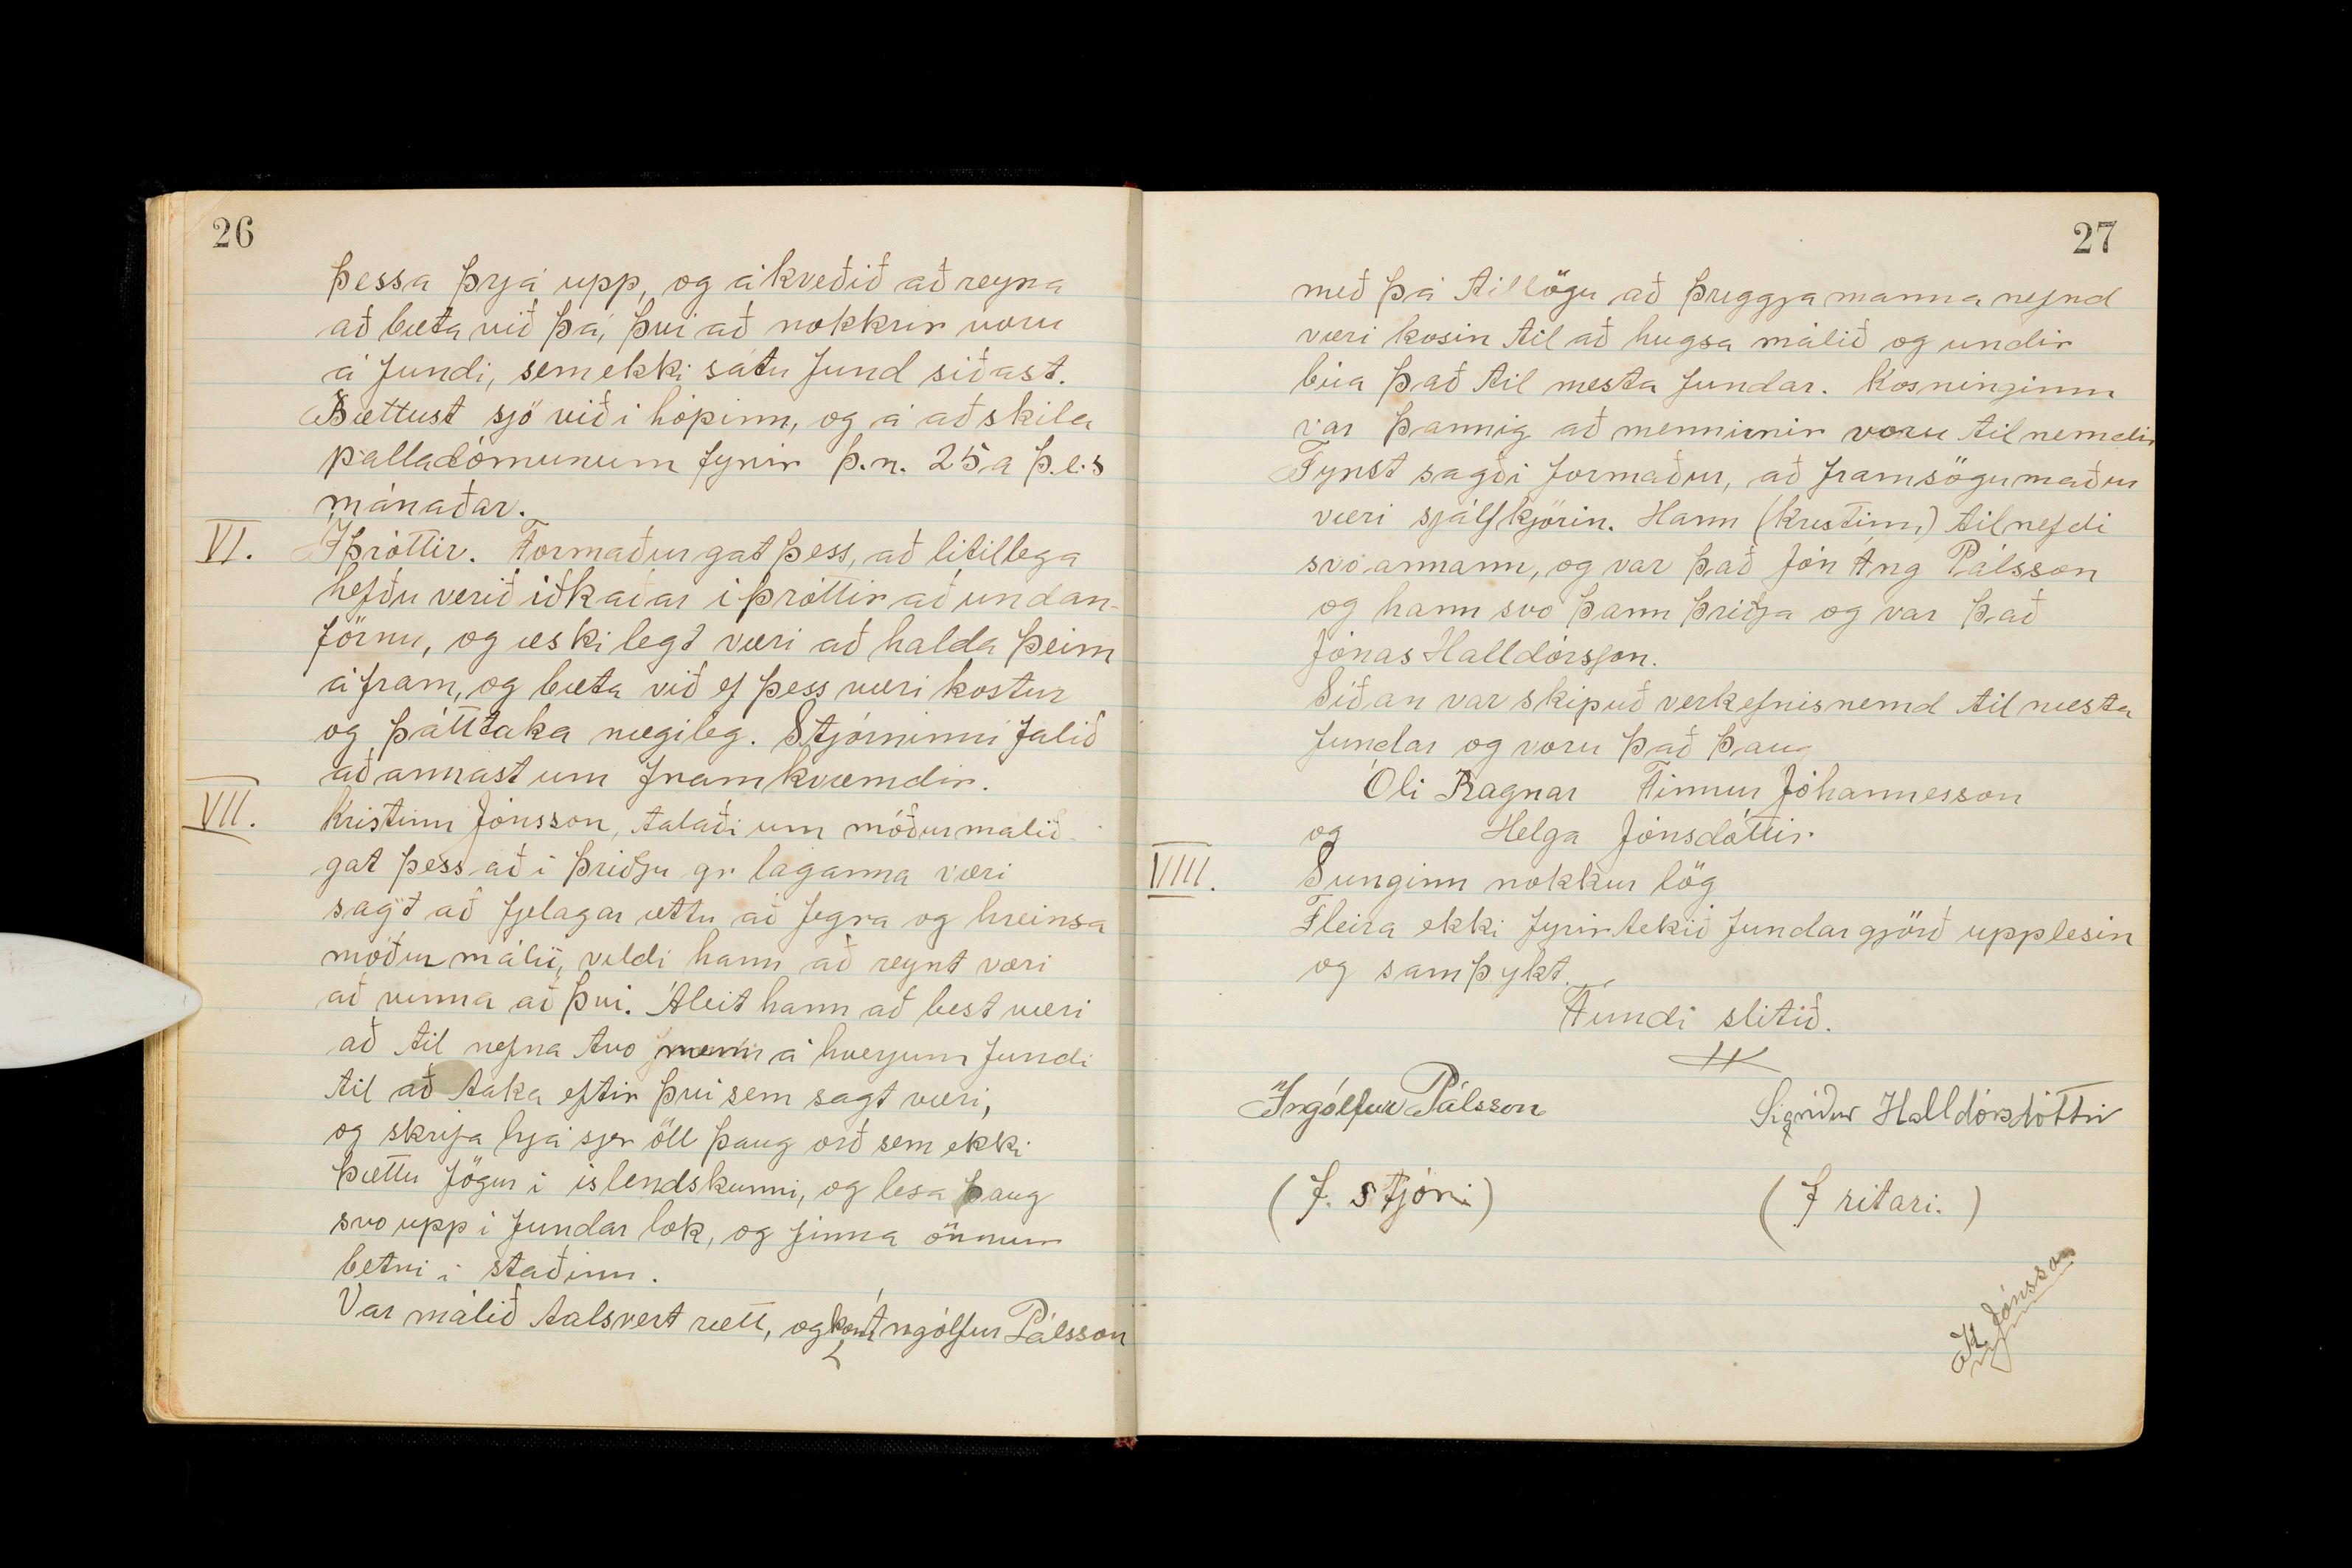 26
þessa þrjá upp, og ákveðið að reyna
að bæta við þá, því að nokkrir voru
á fundi, sem ekki sátu fund síðast.
Bættust sjö við í hópinn, og á að skila
palladómunum fyrir þ.n. 25a þ.e.s
mánaðar.
VI. Íþróttir. Formaður gat þess, að lítillega
hefðu verið iðkaðar íþróttir að undan-
förnu, og æskilegt væri að halda þeim
áfram, og bæta við ef þess væri kostur
og þátttaka nægileg. Stjórninni falið
að annast um framkvæmdir.
VII. Kristinn Jónsson, talaði um móðurmálið
gat þess að í þriðju gr laganna væri
sagt að fjelagar ættu að fegra og hreinsa
móðurmálið, vildi hann að reynt væri
að vinna að því. Áleit hann að best væri
að til nefna tvo menn á hverjum fundi
til að taka eftir því sem sagt væri,
og skrifa hjá sjer öll þaug orð sem ekki
þættu fögur í íslendskunni, og lesa þaug
svo upp í fundar lok, og finna önnur
betri í staðinn.
Var málið talsvert rætt, og kom Ingólfur Pálsson
27
með þá tillögu að þriggja manna nefnd
væri kosin til að hugsa málið og undir
búa það til næsta fundar. Kosninginn
var þannig að mennirnir voru tilnemdir
Fyrst sagði formaður, að framsögumaður
væri sjálfkjörin. Hann (Kristinn) tilnefdi
svo annann, og var það Jón Áng Pálsson
og hann svo þann þriðja og var það
Jónas Halldórsson.
Síðan var skipuð verkefnisnemd til næsta
fundar og voru það þaug
Óli Ragnar Finnur Jóhannesson
og Helga Jónsdóttir
VIIII. Sunginn nokkur lög
Fleira ekki fyrirtekið fundargjörð upplesin
og samþykt.
Fundi slitið.
Ingólfur Pálsson Sigríður Halldórsdóttir
(f. stjóri) (f ritari.)
K Jónsson